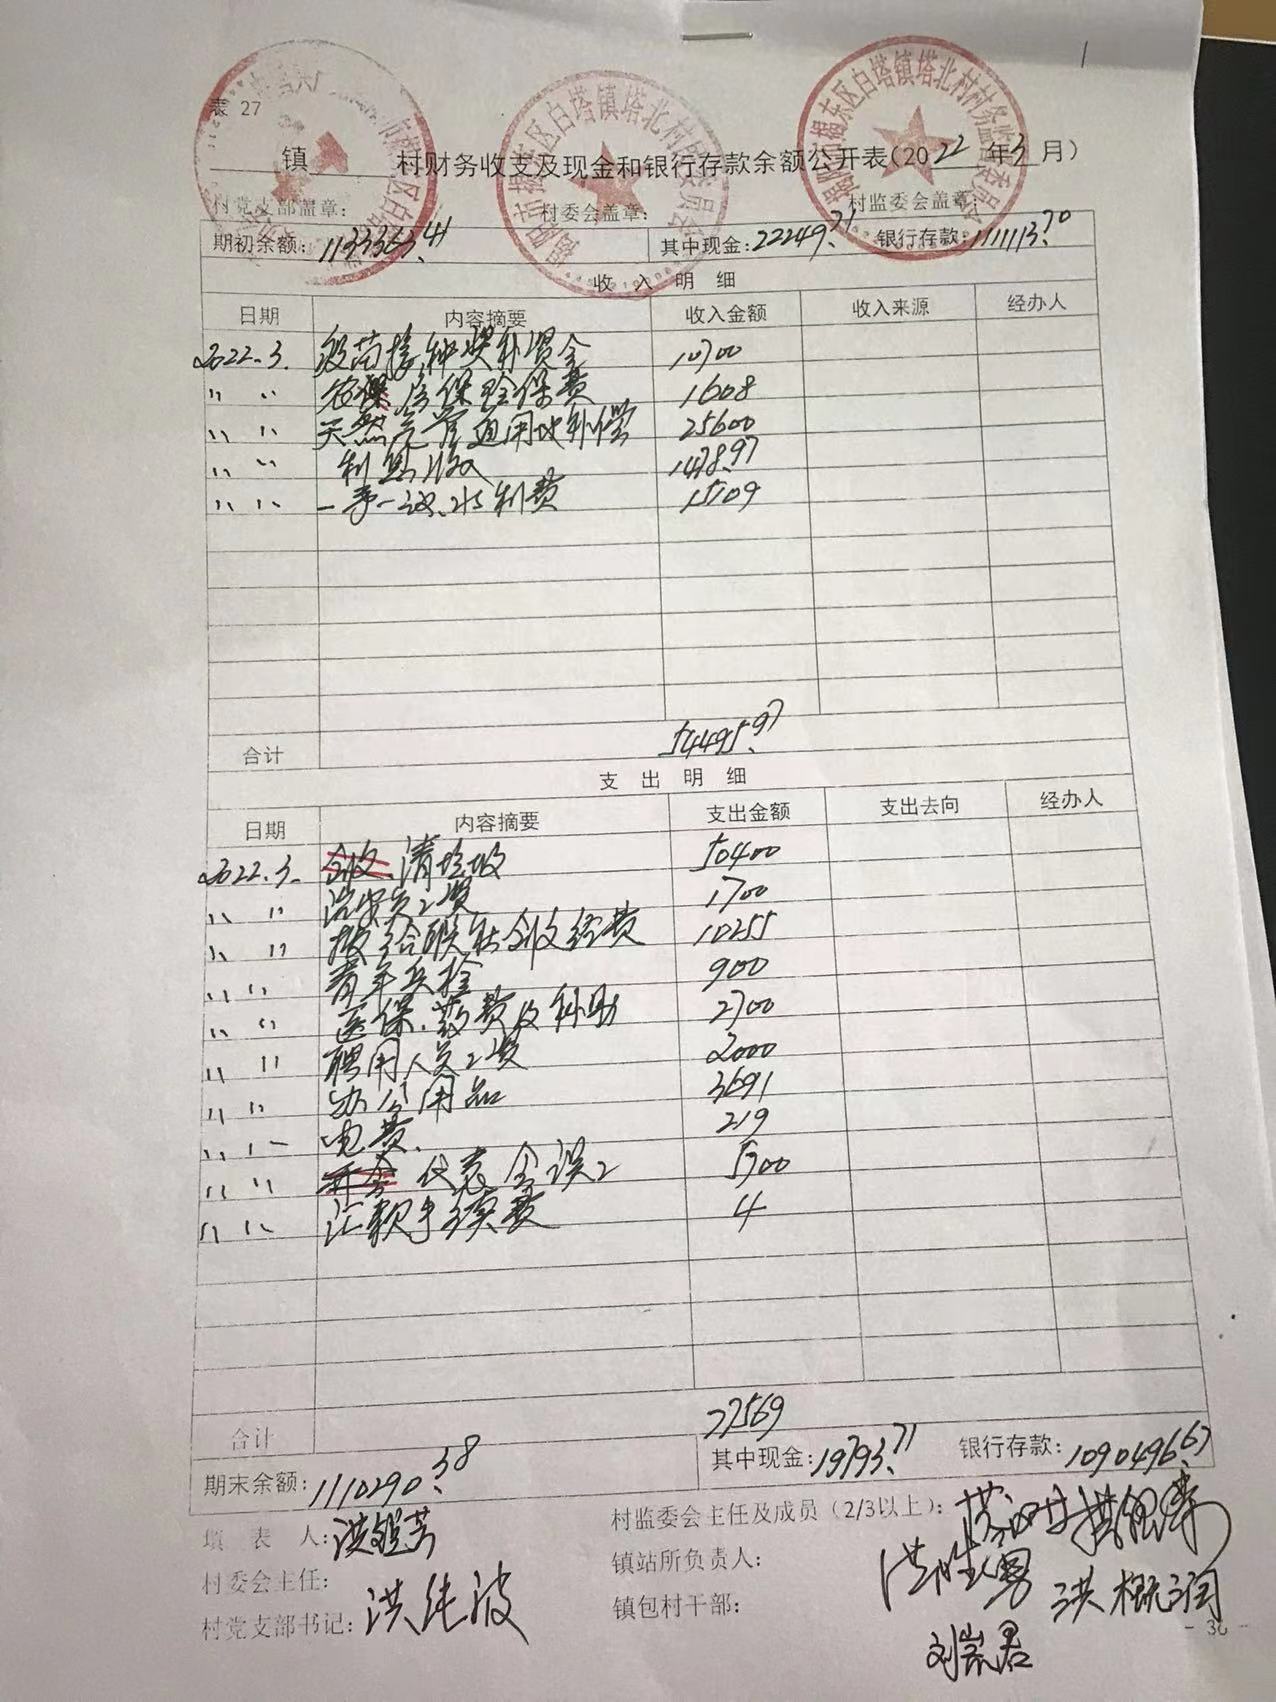 表 27
镇 村财务收支及现金和银行存款余额公开表(2022年3月)
村党支部盖章: 村委会盖章: 村监委会盖章:
揭阳市揭东区白塔镇塔北村村民委员会
揭阳市揭东区白塔镇塔北村村务监督委员会
期初余额: 1133363.41 其中现金: 22249.71 银行存款: 1111113.70
收 入 明 细
日期 内容摘要 收入金额 收入来源 经办人
2022.3. 疫苗接种误补资金 10700
〃 〃 农保 房保险保费 1608
〃 〃 天然气管道用地补偿 25600
〃 〃 利息收入 1478.97
〃 〃 一事一议.水利费 15109
合计 54495.97
支 出 明 细
日期 内容摘要 支出金额 支出去向 经办人
2022.3. 清垃圾 50400
〃 〃 治安员工资 1700
〃 〃 拨给联社创收经费 10255
〃 〃 青年兵检 900
〃 〃 医保.药费及补助 2700
〃 〃 聘用人员工资 2000
〃 〃 办公用品 3691
〃 〃 电费. 219
〃 〃 开会 代表会误工 5700
〃 〃 汇款手续费 4
合计 77569
期末余额: 1110290.38 其中现金: 19793.71 银行存款: 1090496.67
填 表 人: 洪银芳 村监委会主任及成员(2/3以上):
村委会主任: 镇站所负责人: 洪胜勇
村党支部书记: 洪纯波 镇包村干部: 洪概润
刘岚君
- 36 -